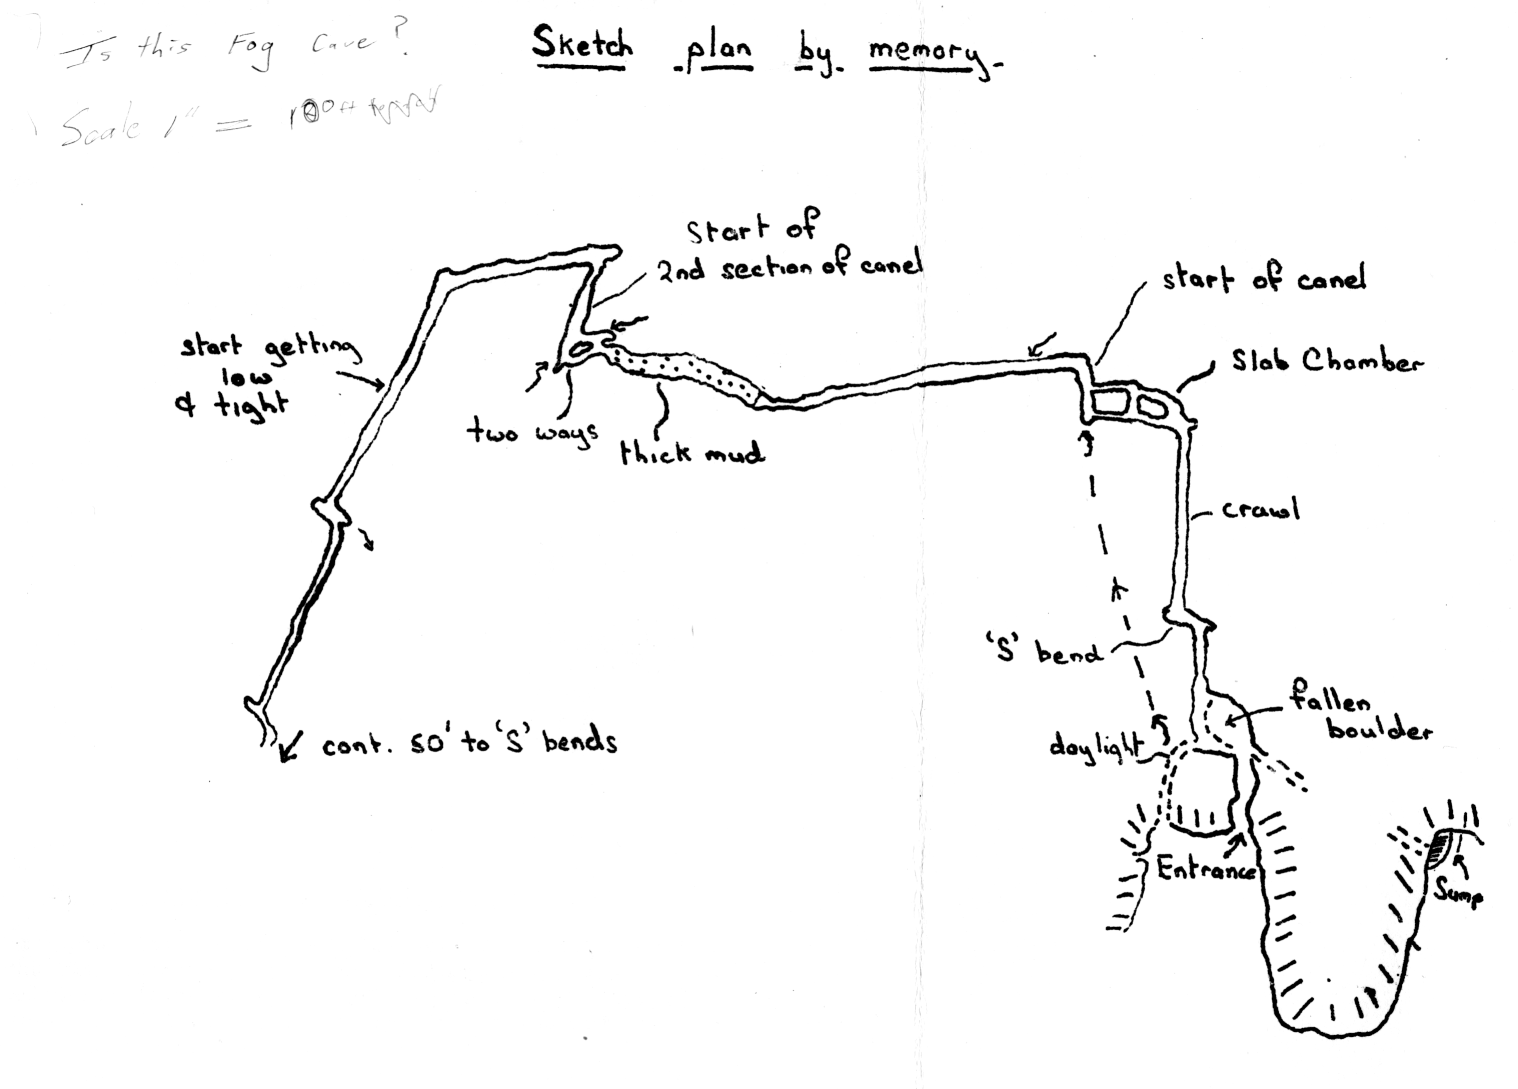 Is this Fog Cave?
Sketch plan by memory.
Scale 1" = 100ft
start of
2nd section of canel
start of canel
start getting
low
& tight
Slab Chamber
two ways
thick mud
crawl
'S' bend
fallen
boulder
daylight
cont. 50' to 'S' bends
Entrance
Sump